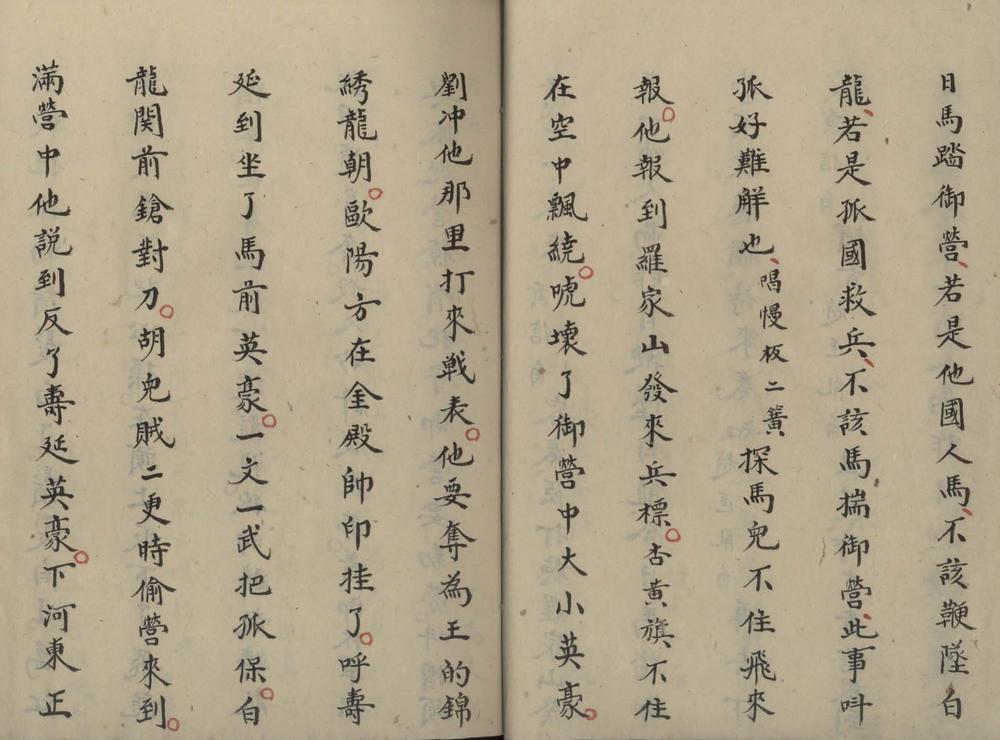 日馬踏御營、若是他國人馬、不該鞭墜白
龍、若是孤國救兵、不該馬揣御營、此事呌
孤好難觧也、唱慢板二簧探馬兒不住飛來
報。他報到羅家山發來兵標。杏黃旗不住
在空中飄繞。唬壞了御營中大小英豪。
劉冲他那里打來戰表。他要奪為王的錦
綉龍朝。歐陽方在金殿帥印挂了。呼壽
延到坐了馬前英豪。一文一武把孤保。白
龍関前鎗對刀。胡兒賊二更時偷營來到。
滿營中他説到反了壽延英豪。下河東正